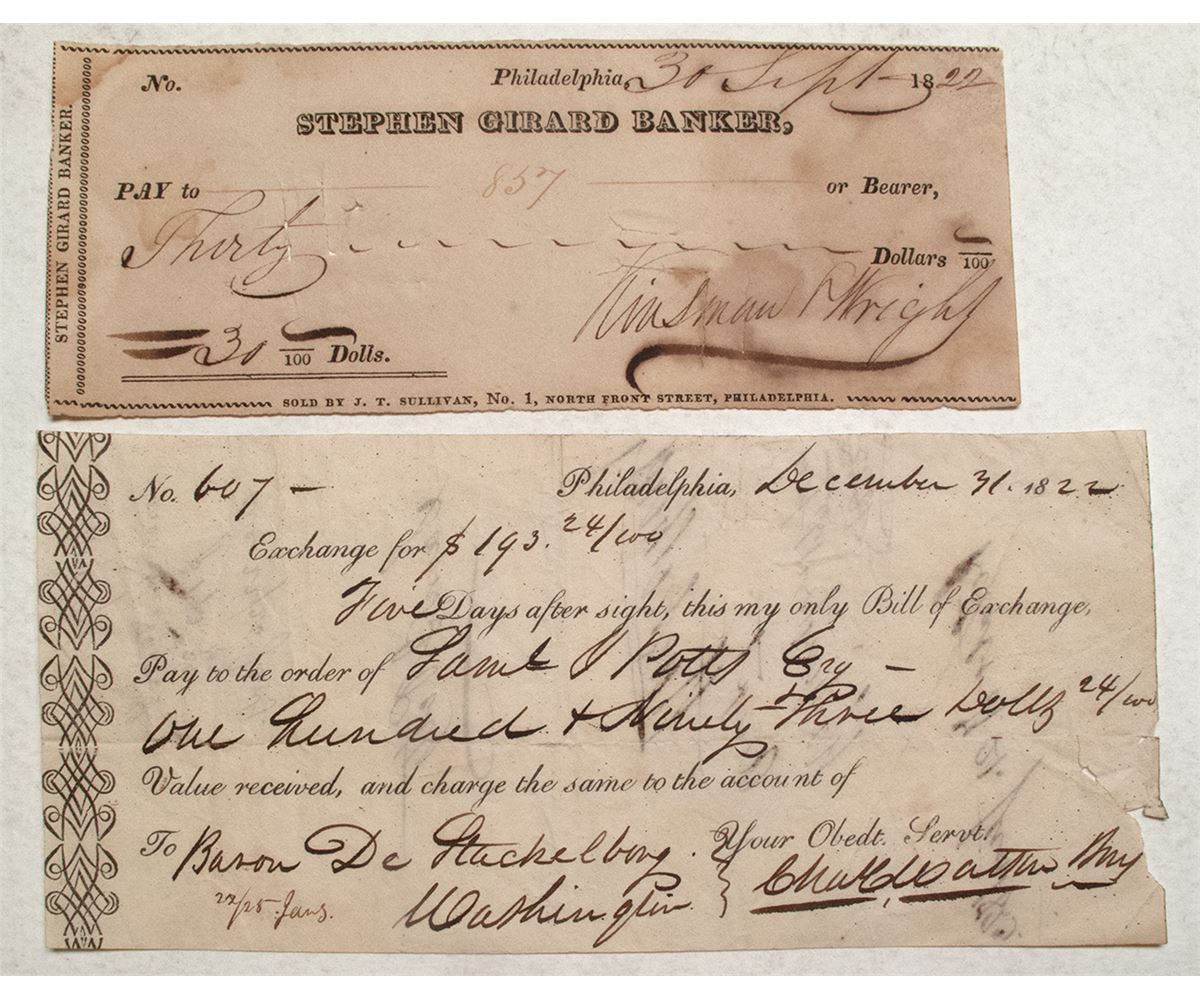 STEPHEN GIRARD BANKER.
No. Philadelphia, 30 Sept 1822
STEPHEN GIRARD BANKER,
PAY to 857 or Bearer,
Thirty Dollars /100
30 /100 Dolls.
Kinsman & Wright
SOLD BY J. T. SULLIVAN, No. 1, NORTH FRONT STREET, PHILADELPHIA.
No. 607 — Philadelphia, December 31. 1822
Exchange for $193. 24/100
Five Days after sight, this my only Bill of Exchange,
Pay to the order of Saml Potts Esq —
One Hundred & Ninety Three Dolls 24/100
Value received, and charge the same to the account of
To Baron De Stackelberg. Your Obedt. Servt.
Washington
22/25 Jany.